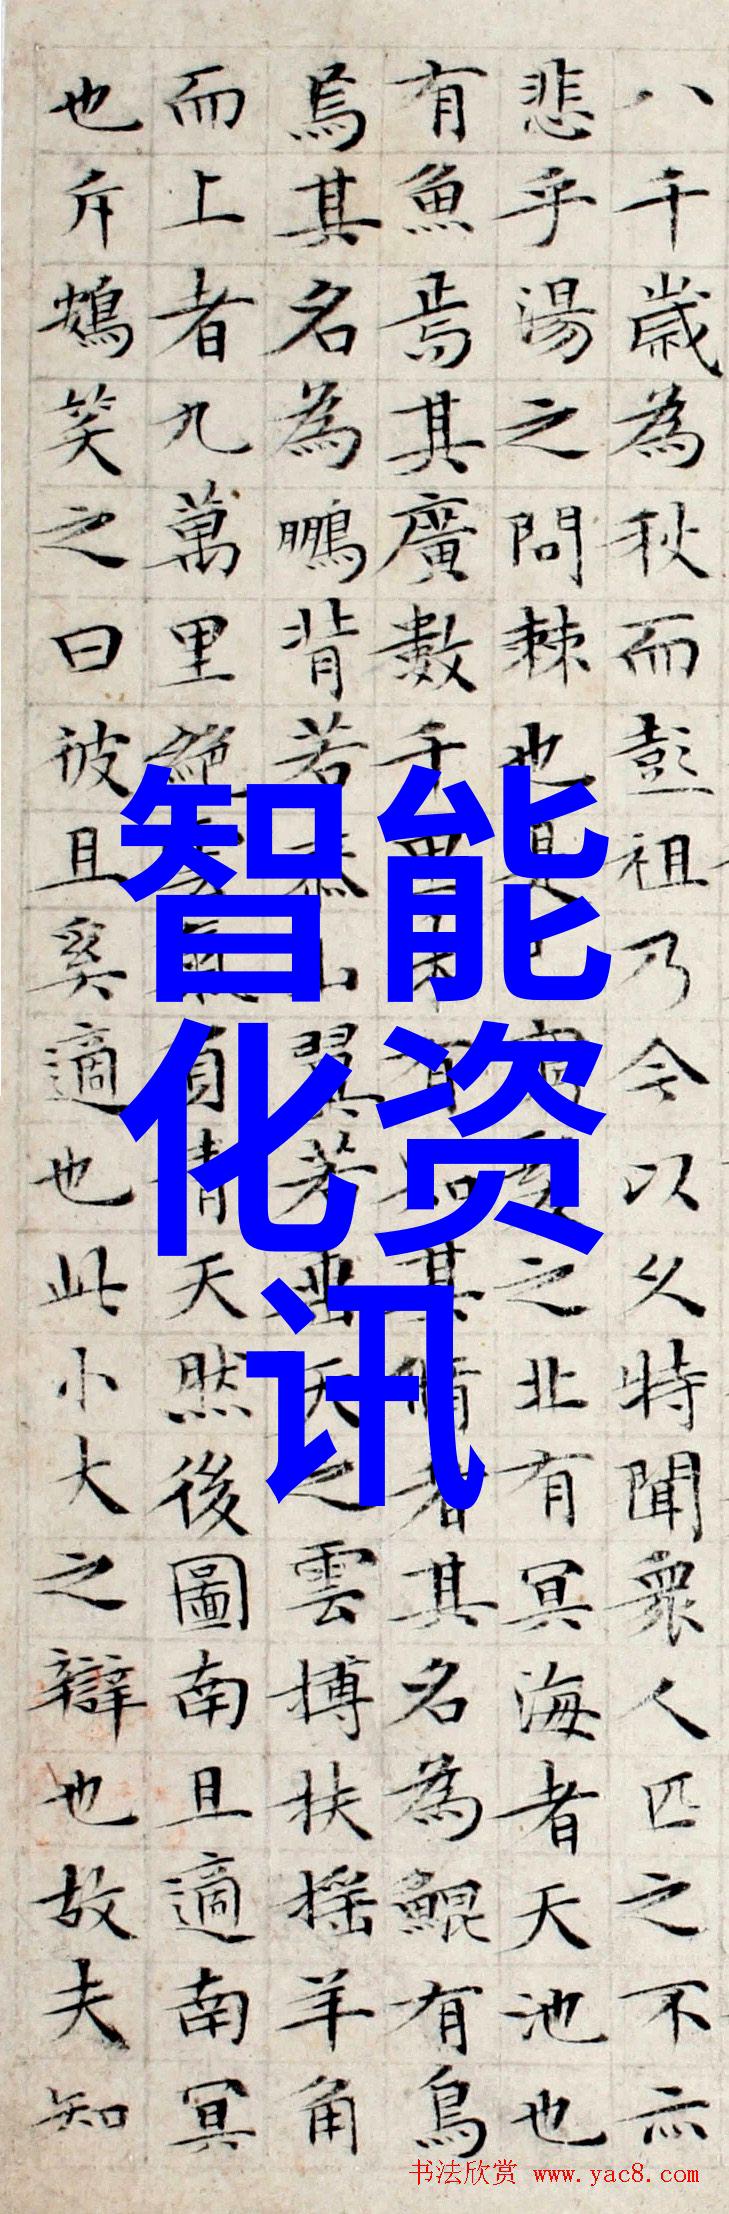 八千歲為秋而彭祖乃今以久特聞衆人匹之不亦
悲乎湯之問棘也是已窮髮之北有冥海者天池也
有魚焉其廣數千里未有知其脩者其名為鯤有鳥
焉其名為鵬背若泰山翼若垂天之雲搏扶搖羊角
而上者九萬里絕雲氣負青天然後圖南且適南冥
也斥鴳笑之曰彼且奚適也此小大之辯也故夫知
智能
化资
讯
书法欣赏 www.yac8.com